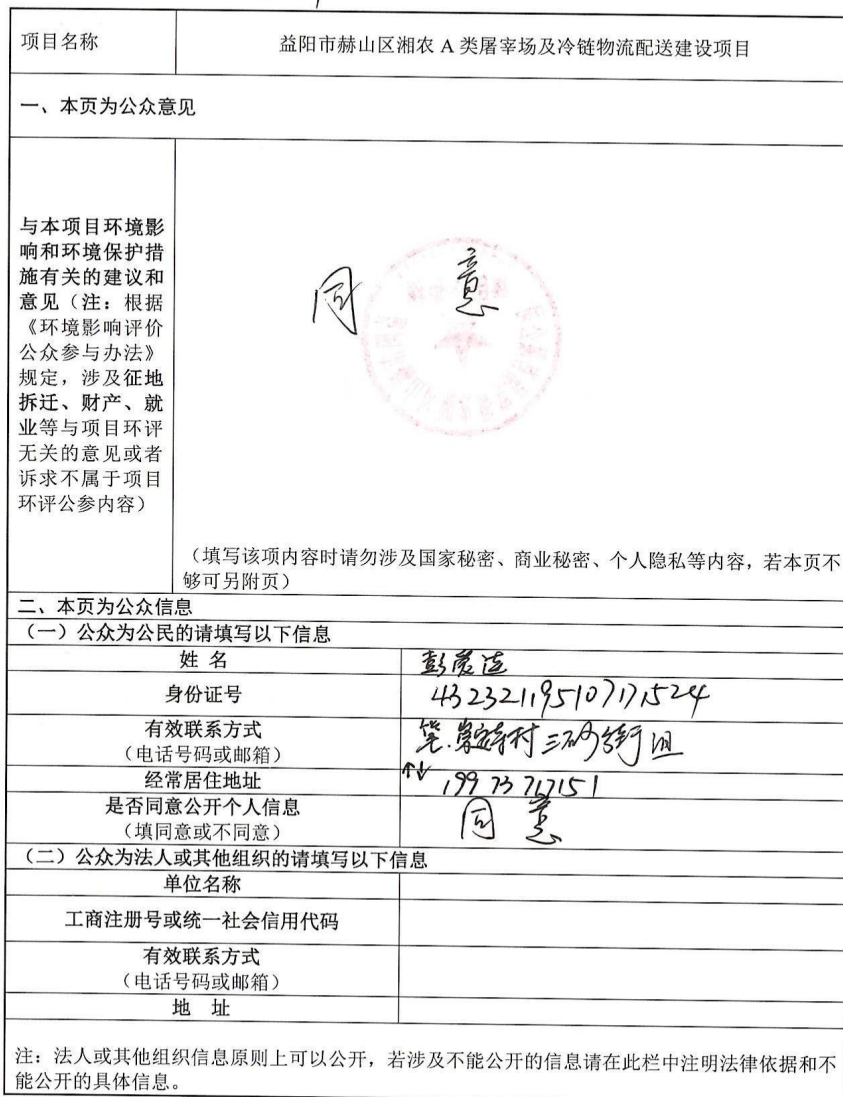 项目名称
益阳市赫山区湘农 A 类屠宰场及冷链物流配送建设项目
一、本页为公众意见
与本项目环境影
响和环境保护措
施有关的建议和
意见（注：根据
《环境影响评价
公众参与办法》
规定，涉及征地
拆迁、财产、就
业等与项目环评
无关的意见或者
诉求不属于项目
环评公参内容）
同 意
（填写该项内容时请勿涉及国家秘密、商业秘密、个人隐私等内容，若本页不
够可另附页）
二、本页为公众信息
（一）公众为公民的请填写以下信息
姓 名
彭
身份证号
432321195107171524
有效联系方式
（电话号码或邮箱）
村三砂街组
经常居住地址
↑↓ 19973717151
是否同意公开个人信息
（填同意或不同意）
同 意
（二）公众为法人或其他组织的请填写以下信息
单位名称
工商注册号或统一社会信用代码
有效联系方式
（电话号码或邮箱）
地 址
注：法人或其他组织信息原则上可以公开，若涉及不能公开的信息请在此栏中注明法律依据和不
能公开的具体信息。